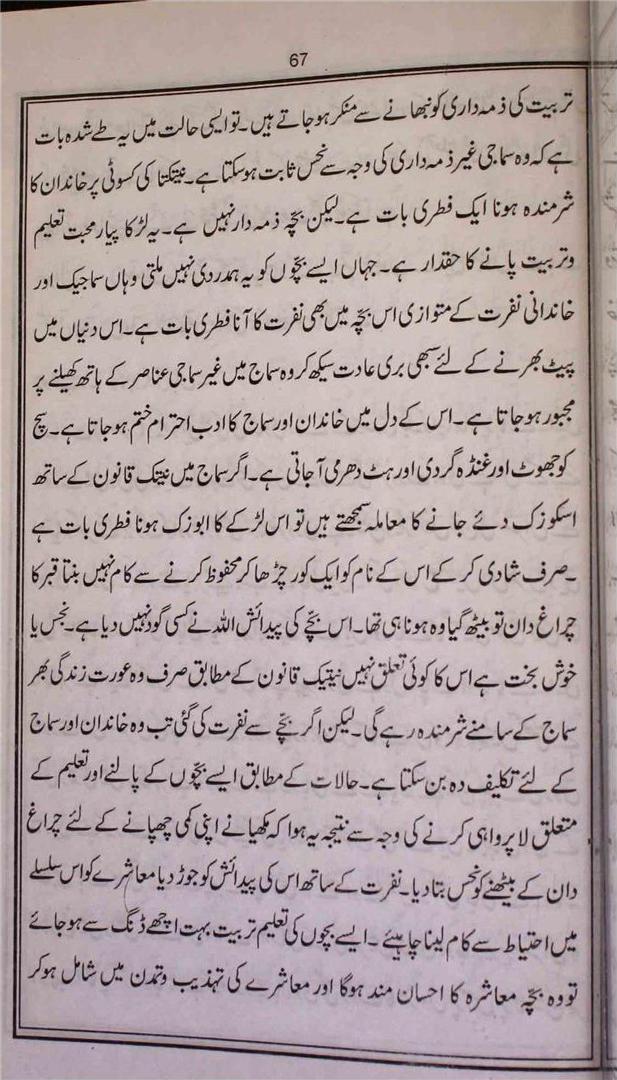 67
تربیت کی ذمہ داری کو نبھانے سے منکر ہو جاتے ہیں۔ تو ایسی حالت میں یہ طے شدہ بات
ہے کہ وہ سماجی غیر ذمہ داری کی وجہ سے نحس ثابت ہو سکتا ہے۔ نیتکتا کی کسوٹی پر خاندان کا
شرمندہ ہونا ایک فطری بات ہے۔ لیکن بچہ ذمہ دار نہیں ہے۔ یہ لڑکا پیار محبت تعلیم
و تربیت پانے کا حقدار ہے۔ جہاں ایسے بچوں کو یہ ہمدردی نہیں ملتی وہاں سماجیک اور
خاندانی نفرت کے متوازی اس بچہ میں بھی نفرت کا آنا فطری بات ہے۔ اس دنیاں میں
پیٹ بھرنے کے لئے سبھی بری عادت سیکھ کر وہ سماج میں غیر سماجی عناصر کے ہاتھ کھیلنے پر
مجبور ہو جاتا ہے۔ اس کے دل میں خاندان اور سماج کا ادب احترام ختم ہو جاتا ہے۔ سچ
کو جھوٹ اور غنڈہ گردی اور ہٹ دھرمی آ جاتی ہے۔ اگر سماج میں نیتک قانون کے ساتھ
اسکو زک دئے جانے کا معاملہ سمجھتے ہیں تو اس لڑکے کا ابوزک ہونا فطری بات ہے
۔صرف شادی کر کے اس کے نام کو ایک کور چڑھا کر محفوظ کرنے سے کام نہیں بنتا قبر کا
چراغ دان تو بیٹھ گیا وہ ہونا ہی تھا۔ اس بچے کی پیدائش اللہ نے کسی گود نہیں دیا ہے۔ نجس یا
خوش بخت ہے اس کا کوئی تعلق نہیں نیتیک قانون کے مطابق صرف وہ عورت زندگی بھر
سماج کے سامنے شرمندہ رہے گی۔ لیکن اگر بچے سے نفرت کی گئی تب وہ خاندان اور سماج
کے لئے تکلیف دہ بن سکتا ہے۔ حالات کے مطابق ایسے بچوں کے پالنے اور تعلیم کے
متعلق لا پرواہی کرنے کی وجہ سے نتیجہ یہ ہوا کہ مکھیا نے اپنی کمی چھپانے کے لئے چراغ
دان کے بیٹھنے کو نحس بتا دیا۔ نفرت کے ساتھ اس کی پیدائش کو جوڑ دیا معاشرے کو اس سلسلے
میں احتیاط سے کام لینا چاہیئے ۔ ایسے بچوں کی تعلیم تربیت بہت اچھے ڈنگ سے ہو جائے
تو وہ بچہ معاشرہ کا احسان مند ہوگا اور معاشرے کی تہذیب و تمدن میں شامل ہو کر